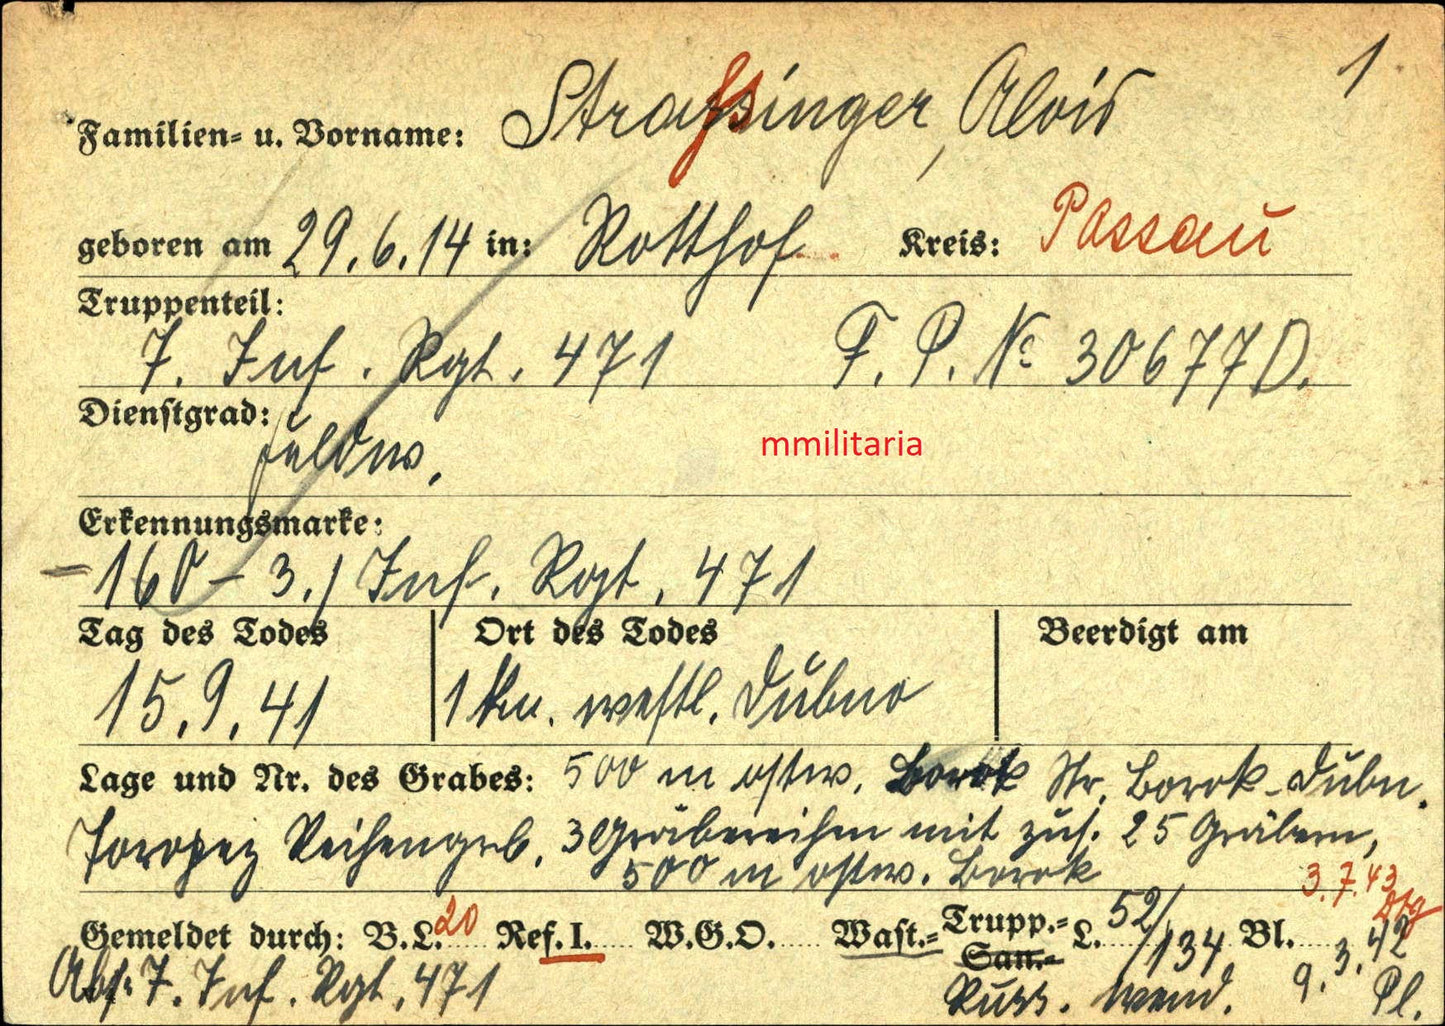 1
Familien- u. Vorname: Strassinger, Alois
geboren am 29.6.14 in: Rotthof Kreis: Passau
Truppenteil:
7. Inf. Rgt. 471 F.P. No 30677D.
Dienstgrad:
Feldw.
mmilitaria
Erkennungsmarke:
-160- 3./ Inf. Rgt. 471
Tag des Todes Ort des Todes Beerdigt am
15.9.41 1 km. westl. Dubno
Lage und Nr. des Grabes: 500 m ostw. Borok Str. Borok-Dubn.
Toropez Reihengrb. 3 Gräbereihen mit zus. 25 Gräbern,
500 m ostw. Borok
3.7.43
Gemeldet durch: B.L. 20 Ref. I. W.G.O. Wast.- Trupp.- L. 52/134 Bl.
San.-
9.3.42
Abs. 7. Inf. Rgt. 471 Russ. Pl.